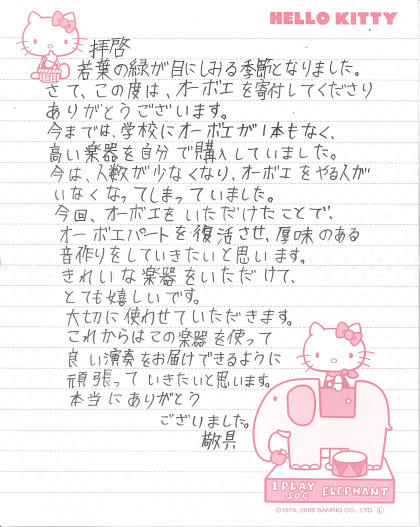 HELLO KITTY
拝啓
若葉の緑が目にしみる季節となりました。
さて、この度は、オーボエを寄付してくださり
ありがとうございます。
今までは、学校にオーボエが1本もなく、
高い楽器を自分で購入していました。
今は、人数が少なくなり、オーボエをやる人が
いなくなってしまっていました。
今回、オーボエをいただけたことで、
オーボエパートを復活させ、厚味のある
音作りをしていきたいと思います。
きれいな楽器をいただけて、
とても嬉しいです。
大切に使わせていただきます。
これからはこの楽器を使って
良い演奏をお届けできるように
頑張っていきたいと思います。
本当にありがとう
ございました。
敬具
I PLAY
SOC ELEPHANT
©1976, 2008 SANRIO CO., LTD. Ⓛ